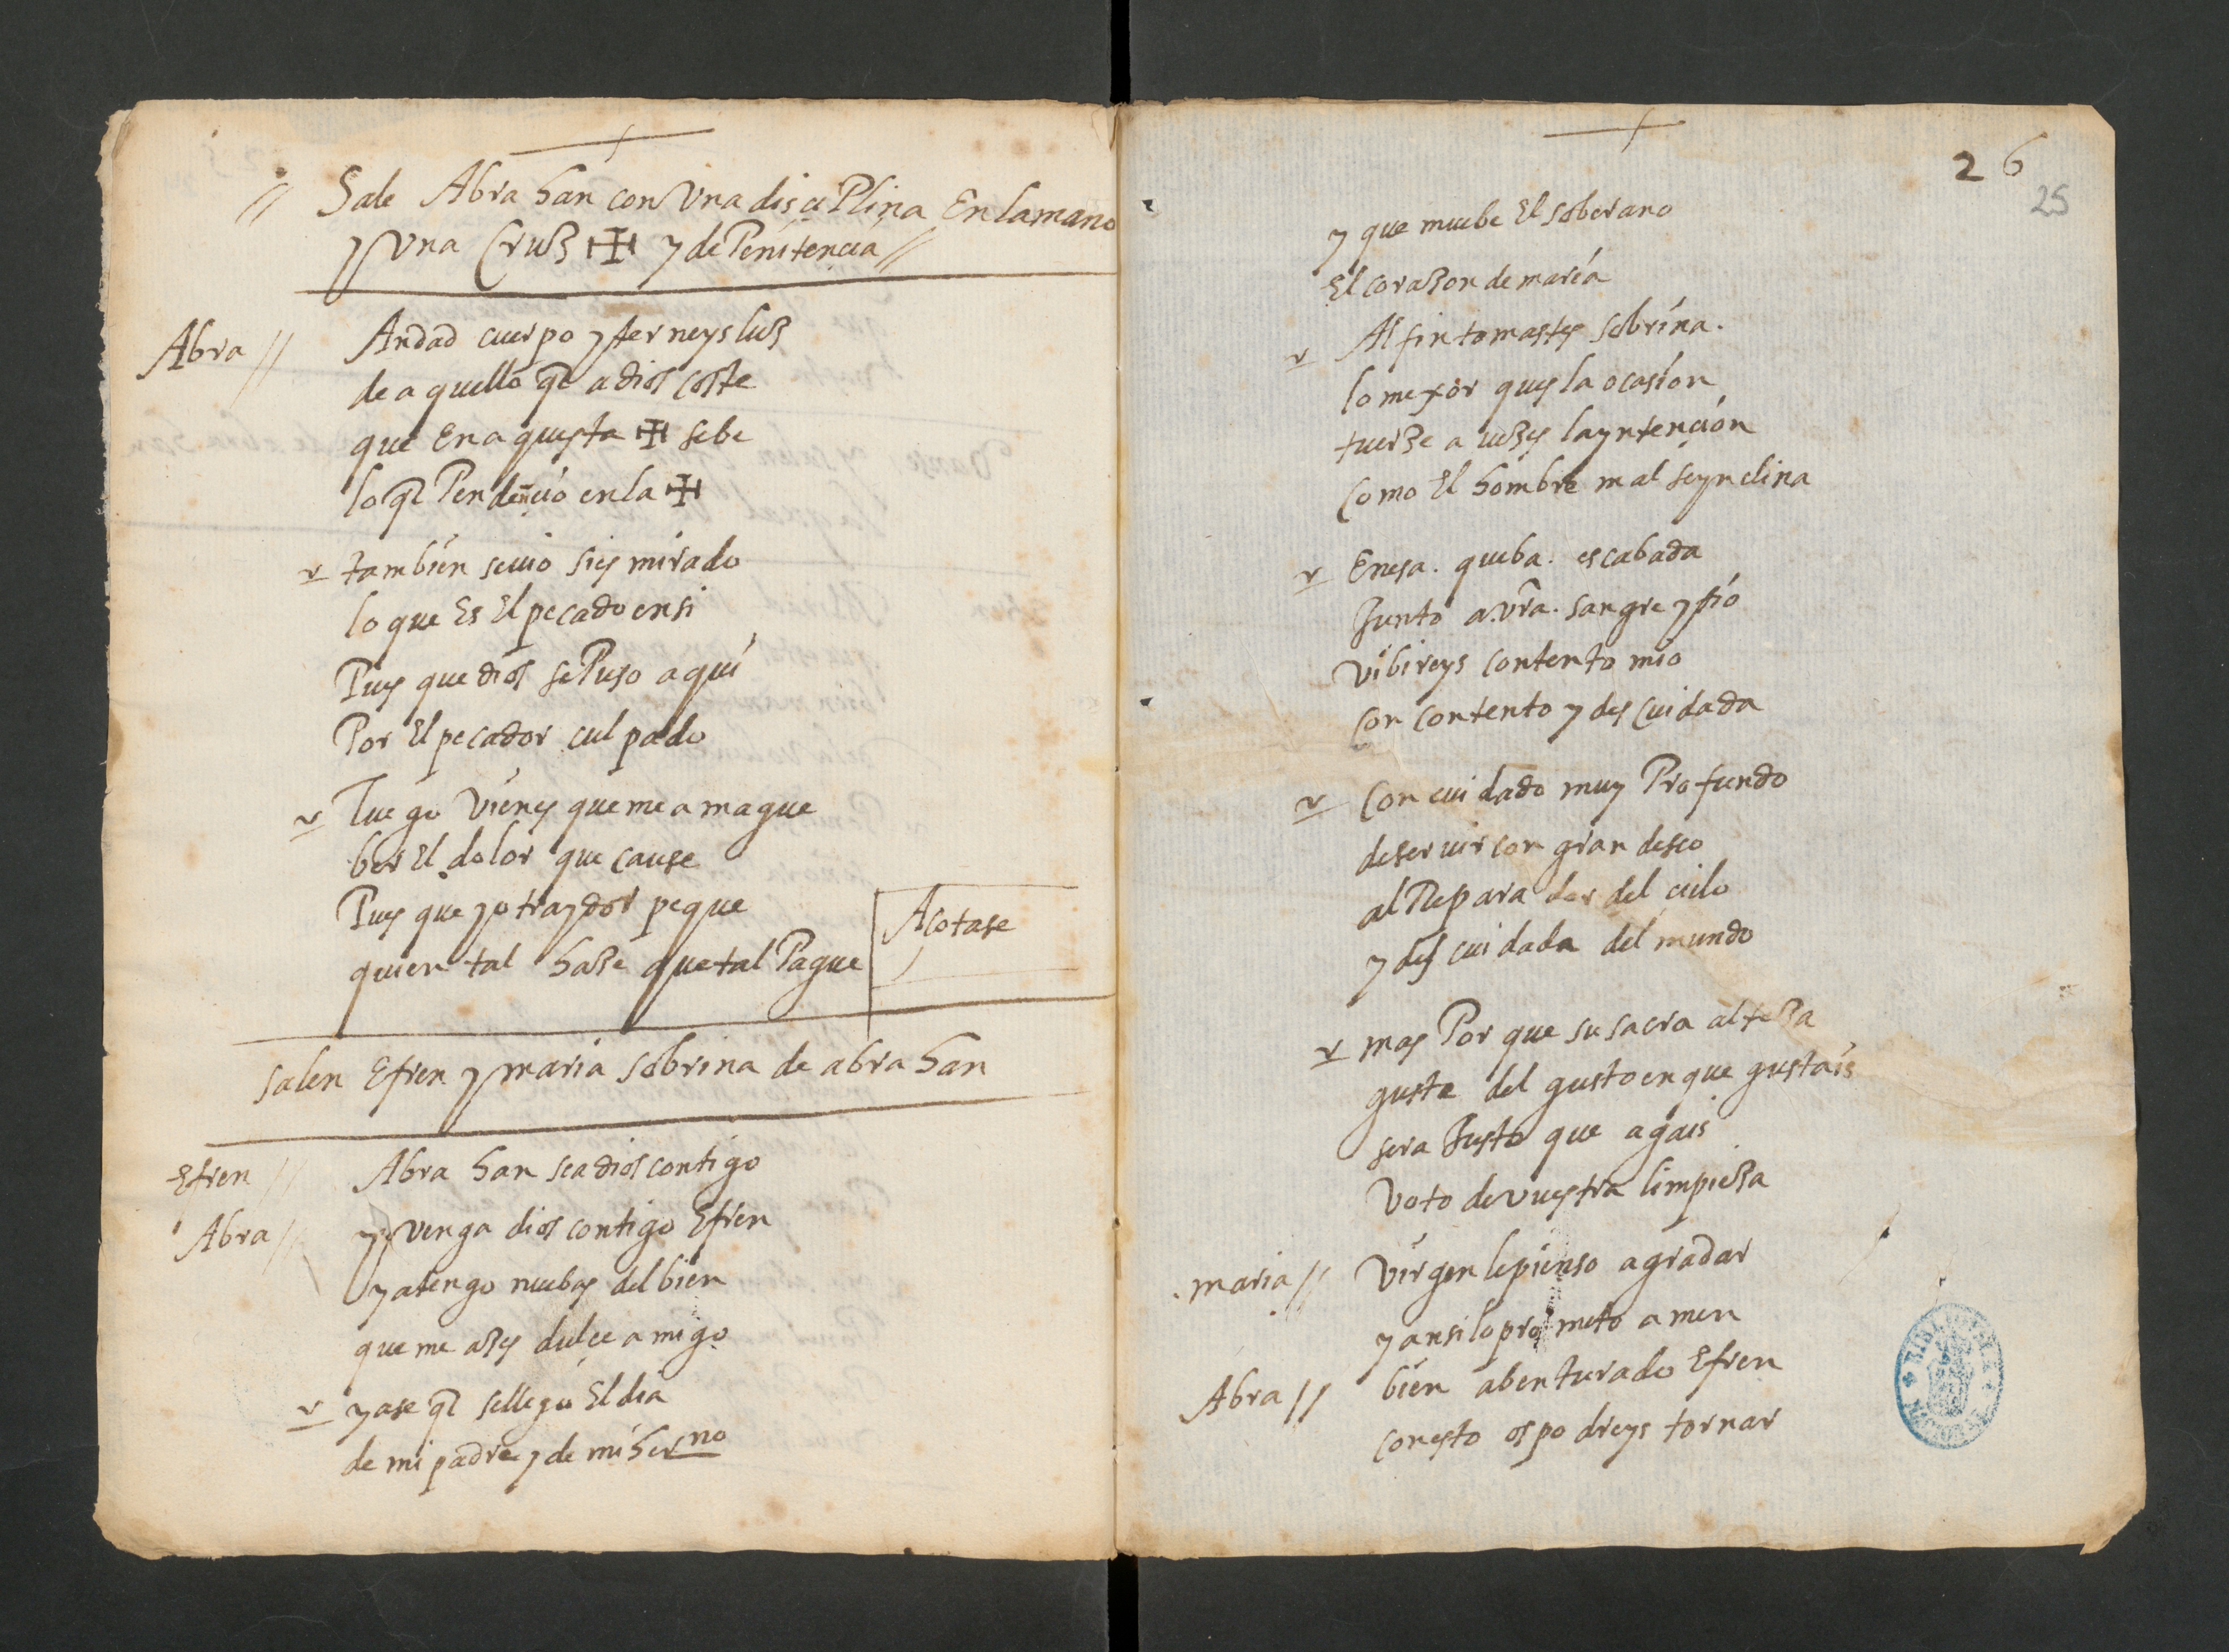 // Sale Abra han con Una disciPlina En la mano
y Una Cruz ✠ y de Penitencia //
Abra // Andad cuerpo y terneys luz
de aquello q̄ a dios coste
que En aquesta ✠ sebe
lo q̄ Pendençio en la ✠
v tambien se vio si es mirado
lo que Es El pecado en si
Pues que dios se Puso aqui
Por El pecador culpado
v Luego Vienes que me amague
ber El dolor que cause
Pues que yo traydor peque
quien tal haze que tal Pague
Acotase
salen Efren y maria sobrina de abra han
Efren // Abra han sea dios contigo
Abra // y venga dios contigo Efren
ya tengo nuebas del bien
que me azes dulce amigo
v ya se q̄ se llego El dia
de mi padre y de mi herno
26
25
y que muebe El soberano
El corazon de maria
v Al fin tomastes sobrina.
lo mexor ques la ocasion
tuerze a uezes la yntencion
como El hombre mal se ynclina
v En esa. queba. escabada
Junto a vra. sangre y pio
vibireys contento mio
con contento y descuidada
v Con cuidado muy Profundo
de servir con gran deseo
al Reparador del cielo
y descuidada del mundo
v mas Por que su sacra alteza
guste del gusto en que gustais
sera Justo que agais
Voto de vuestra limpieza
maria // Virgen le pienso agradar
y ansi lo prometo amen
Abra // bien abenturado Efren
con esto os podreys tornar